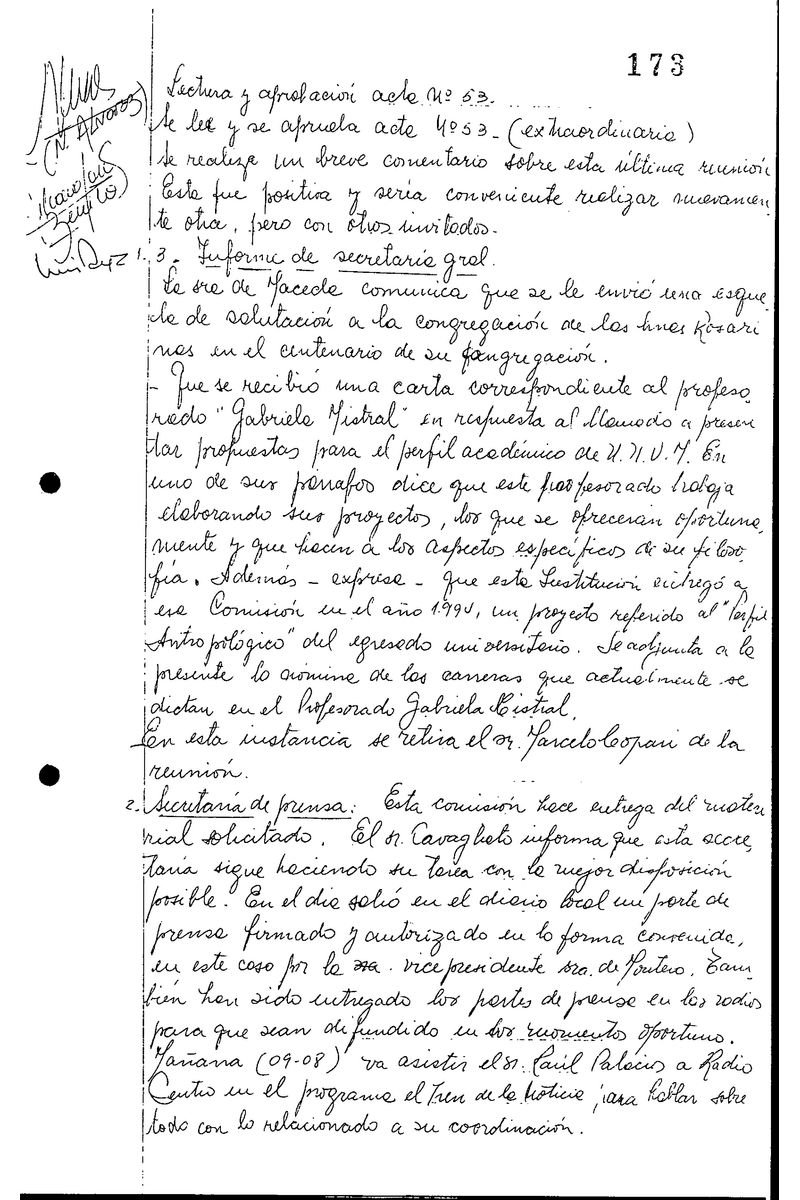 173
(N. Alvarez)
Lectura y aprobación acta Nº 53.
Se lee y se aprueba acta Nº 53 - (extraordinaria)
Se realiza un breve comentario sobre esta última reunión
Esta fue positiva y sería conveniente realizar nuevamen
te otra, pero con otros invitados.
1. 3. Informe de secretaría gral.
La sra de Maceda comunica que se le envió una esque
la de salutación a la congregación de las hnas Rosari
nas en el centenario de su congregación.
- Que se recibió una carta correspondiente al profeso
rado "Gabriela Mistral" en respuesta al llamado a presen
tar propuestas para el perfil académico de U.N.V.M. En
uno de sus párrafos dice que este profesorado trabaja
elaborando sus proyectos, los que se ofrecerán oportuna
mente y que hacen a los aspectos específicos de su filoso
fía. Además - expresa - que esta Institución entregó a
esa Comisión en el año 1.994, un proyecto referido al "Perfil
Antropológico" del egresado universitario. Se adjunta a la
presente la nómina de las carreras que actualmente se
dictan en el Profesorado Gabriela Mistral.
En esta instancia se retira el sr. Marcelo Copari de la
reunión.
2. Secretaría de prensa: Esta comisión hace entrega del mate
rial solicitado. El sr. Cavagliato informa que esta secre
taría sigue haciendo su tarea con la mejor disposición
posible. En el día salió en el diario local un parte de
prensa firmado y autorizado en la forma convenida,
en este caso por la sra. vicepresidente sra. de Montero. Tam
bién han sido entregado los partes de prensa en las radios
para que sean difundido en los momentos oportuno.
Mañana (09-08) va asistir el sr. Raúl Palacios a Radio
Centro en el programa el Tren de la Noticia para hablar sobre
todo con lo relacionado a su coordinación.